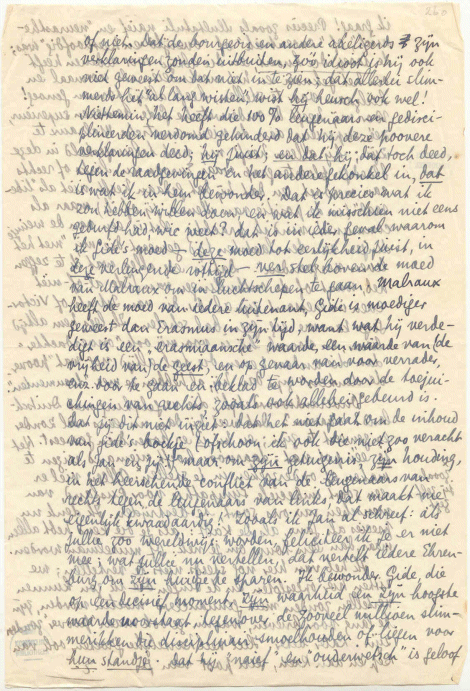 of niet. Dat de bourgeois en andere abéligerds zijn
verklaringen zouden uitbuiten, zóó idioot is hij ook
niet geweest om dat niet in te zien; dat alle die slim-
merds het "al lang wisten", wist hij heusch óók wel!
Niettemin, het heeft die 100% leugenaars en gedisci-
plineerden verdomd gehinderd dat hij deze poovere
verklaringen deed; hij juist; en dat hij dat toch deed,
tegen de raadgevingen en het andere gekonkel in, dat
is wat ik in hem bewonder. Dat is precies wat ik
zou hebben willen doen, en wat ik misschien niet eens
gedurfd had, wie weet? dat is in ieder geval waarom
ik Gide's moed — deze moed tot eerlijkheid juist, in
deze verleugende rottijd — ver stel boven de moed
van Malraux om in luchtschepen te gaan. Malraux
heeft de moed van iedere luitenant, Gide is moediger
geweest dan Erasmus in zijn tijd, want wat hij verde-
digt is een "erasmiaansche" waarde, een waarde van de
vrijheid van de geest, en op gevaar van voor verrader,
enz. door te gaan en beklad te worden door de toejui-
chingen van rechts, zooals ook allebei gebeurd is.
Dat jij dit niet inziet, dat het niet gaat om de inhoud
van Gide's boekje (ofschoon ik ook die niet zoo veracht
als Jan en jij) maar om zijn getuigenis, zijn houding,
in het heerschende conflict van de leugenaars van
rechts tegen de leugenaars van links, dat maakt me
eigenlijk kwaadaardig! Zooals ik Jan al schreef: als
jullie zoo wereldwijs worden, feliciteer ik je er niet
mee; wat jullie nu vertellen, dat vertelt iedere Ehren-
burg om zijn huzige te sparen. Ik bewonder Gide, die
op een beslissend moment zijn waarheid en zijn hoogste
waarde voorstaat, tegenover de zooveel millioen slim-
merikken die disciplinair smoelhouden of liegen voor
hun standje. Dat hij "naïef" en "onderwetsch" is geloof